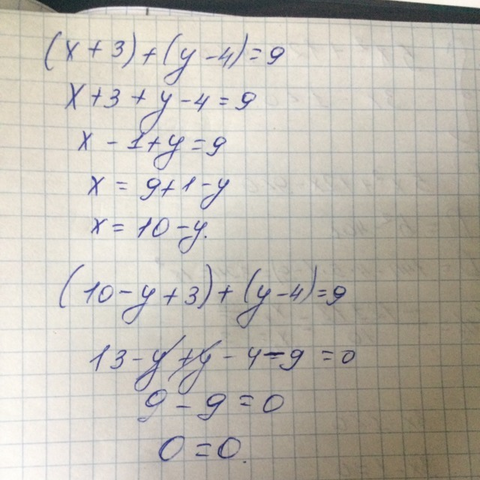 (x+3)+(y-4)=9
x+3+y-4=9
x-1+y=9
x=9+1-y
x=10-y.
(10-y+3)+(y-4)=9
13-y+y-4-9=0
9-9=0
0=0.